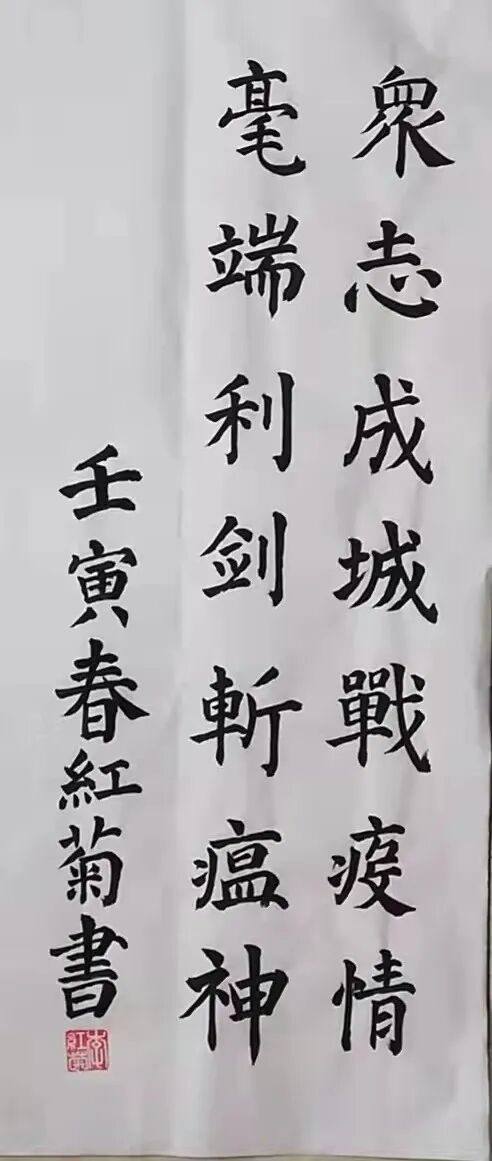 眾志成城戰疫情
毫端利剑斬瘟神
壬寅春紅菊書